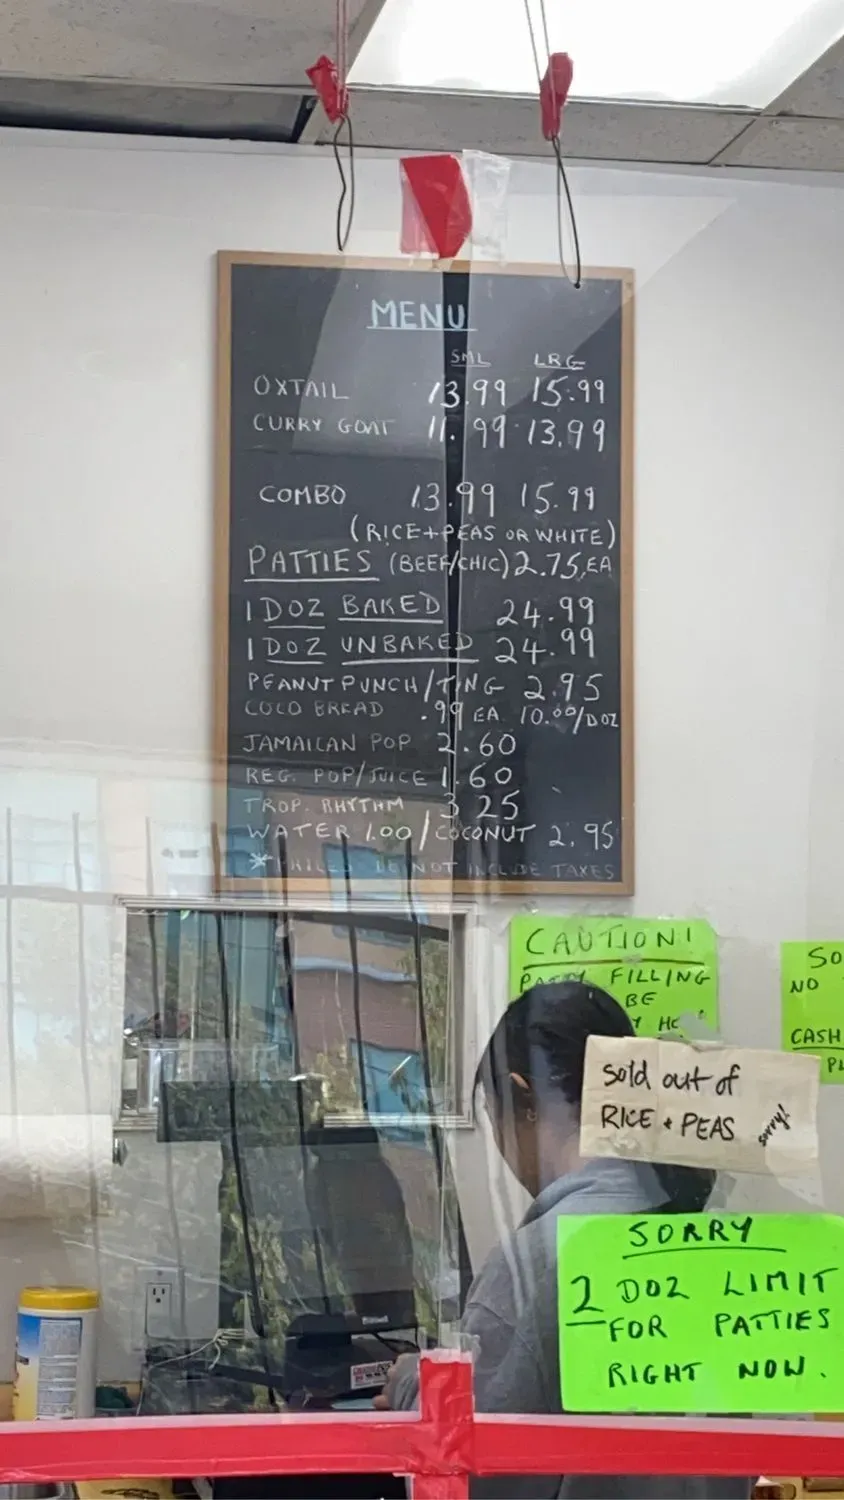 MENU
SML LRG
OXTAIL 13.99 15.99
CURRY GOAT 11.99 13.99
COMBO 13.99 15.99
(RICE+PEAS OR WHITE)
PATTIES (BEEF/CHIC) 2.75 EA
1 DOZ BAKED 24.99
1 DOZ UNBAKED 24.99
PEANUT PUNCH/TING 2.95
COCO BREAD .99 EA. 10.00/DOZ
JAMAICAN POP 2.60
REG. POP/JUICE 1.60
TROP. RHYTHM 3.25
WATER 1.00/COCONUT 2.95
* NOT INCLUDE TAXES
CAUTION!
PATTY FILLING
BE
SO
NO
CASH
sold out of
RICE + PEAS sorry!
SORRY
2 DOZ LIMIT
FOR PATTIES
RIGHT NOW.